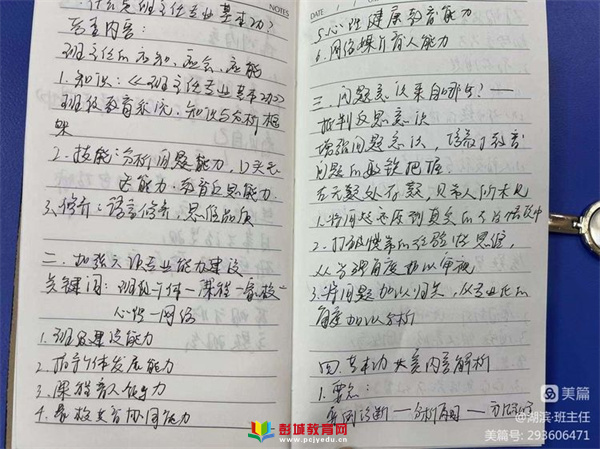 一.什么是班主任专业基本功?
NOTES
考查内容:
班主任的应知、应会、应能
1.知识:《班主任专业基本功》
班级教育系统、知识与分析框
架
2.技能:分析问题能力,口头表
达能力、教育反思能力
3.修养:语言修养,思维品质
二、加强六项专业能力建设
关键词:班级一个体一课程一家校一
心理一网络
1.班级建设能力
2.指导个体发展能力
3.课程育人能力
4.家校共育协同能力
DATE
5.心理健康教育能力
6.网络媒介育人能力
三、问题意识来自哪些?——
批判反思意识
增强问题意识,培养对教育
问题的敏锐把握
在无疑处存疑,见常人所未见
1.将问题还原到真实的情境中
2.打破惯常的经验性思维,
从学理角度加以审视
3.将问题加以归类,从专业化的
角度加以分析
四.基本功大赛内容解析
1.要点:
案例诊断——分析原因——
彭城教育网
www.pcjyedu.cn
美篇
@湖滨·班主任
美篇号:293606471